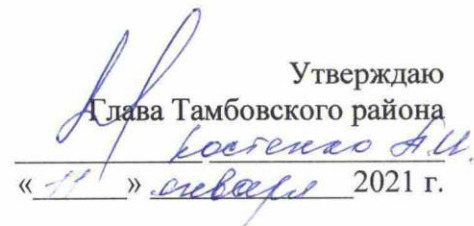 Утверждаю
Глава Тамбовского района
Костенко А.И.
« 11 » января 2021 г.